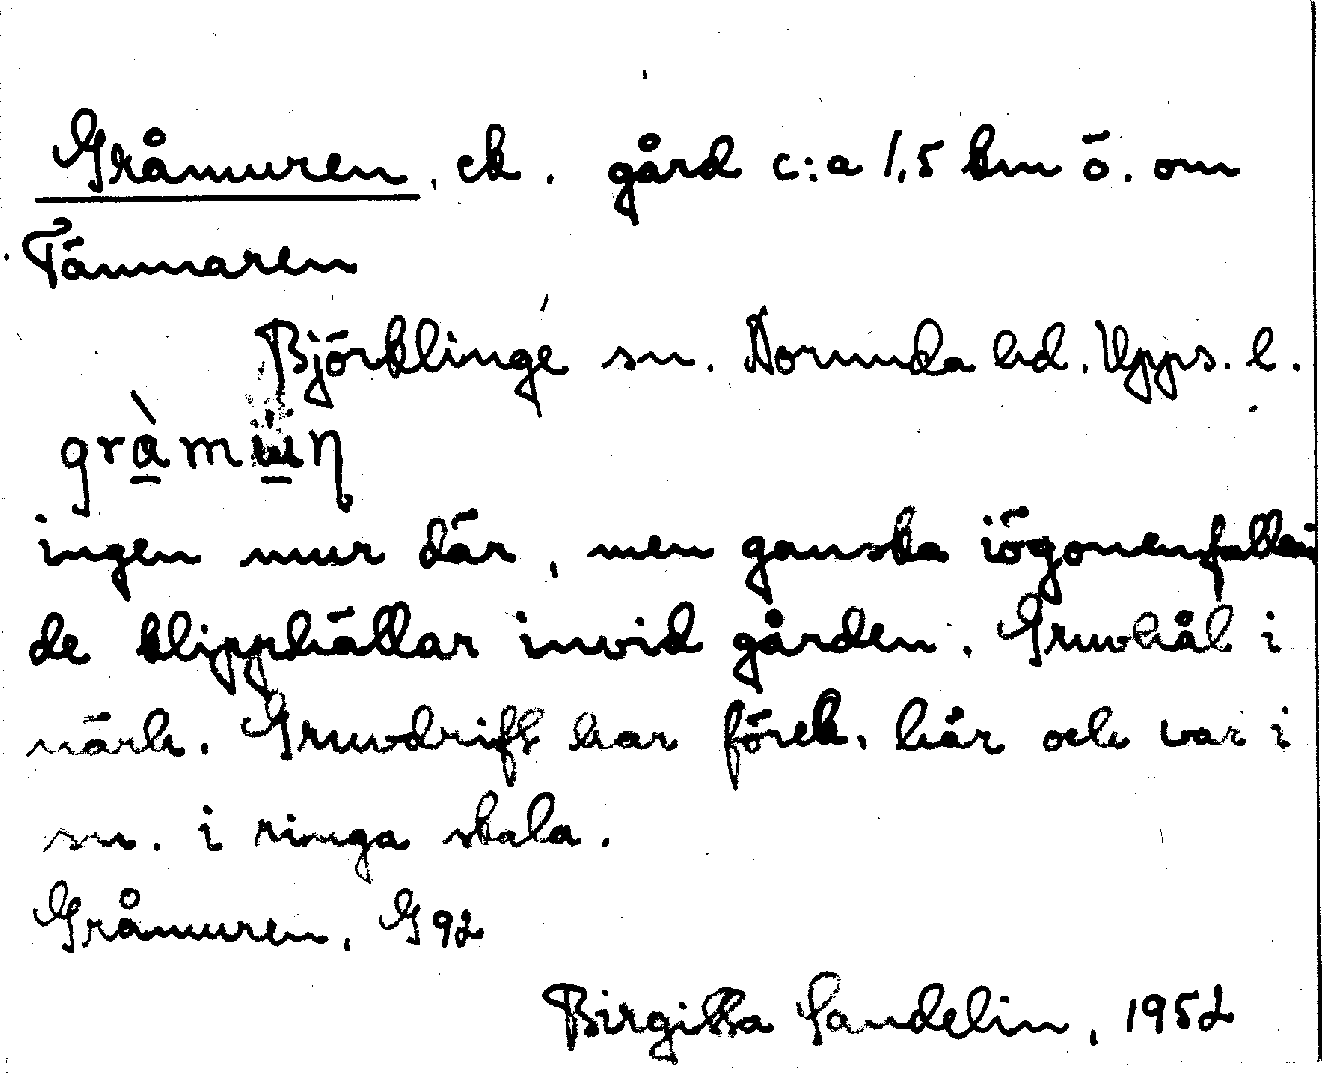 Gråmuren, ek. gård c:a 1,5 km ö. om
Tämnaren
Björklinge sn. Norunda hd. Upps. l.
ingen mur där, men ganska iögonenfallan
de klipphällar invid gården. Gruvhål i
närh. Gruvdrift har förek. här och var i
sn. i ringa skala.
Gråmuren, G 92
Birgitta Sandelin, 1952